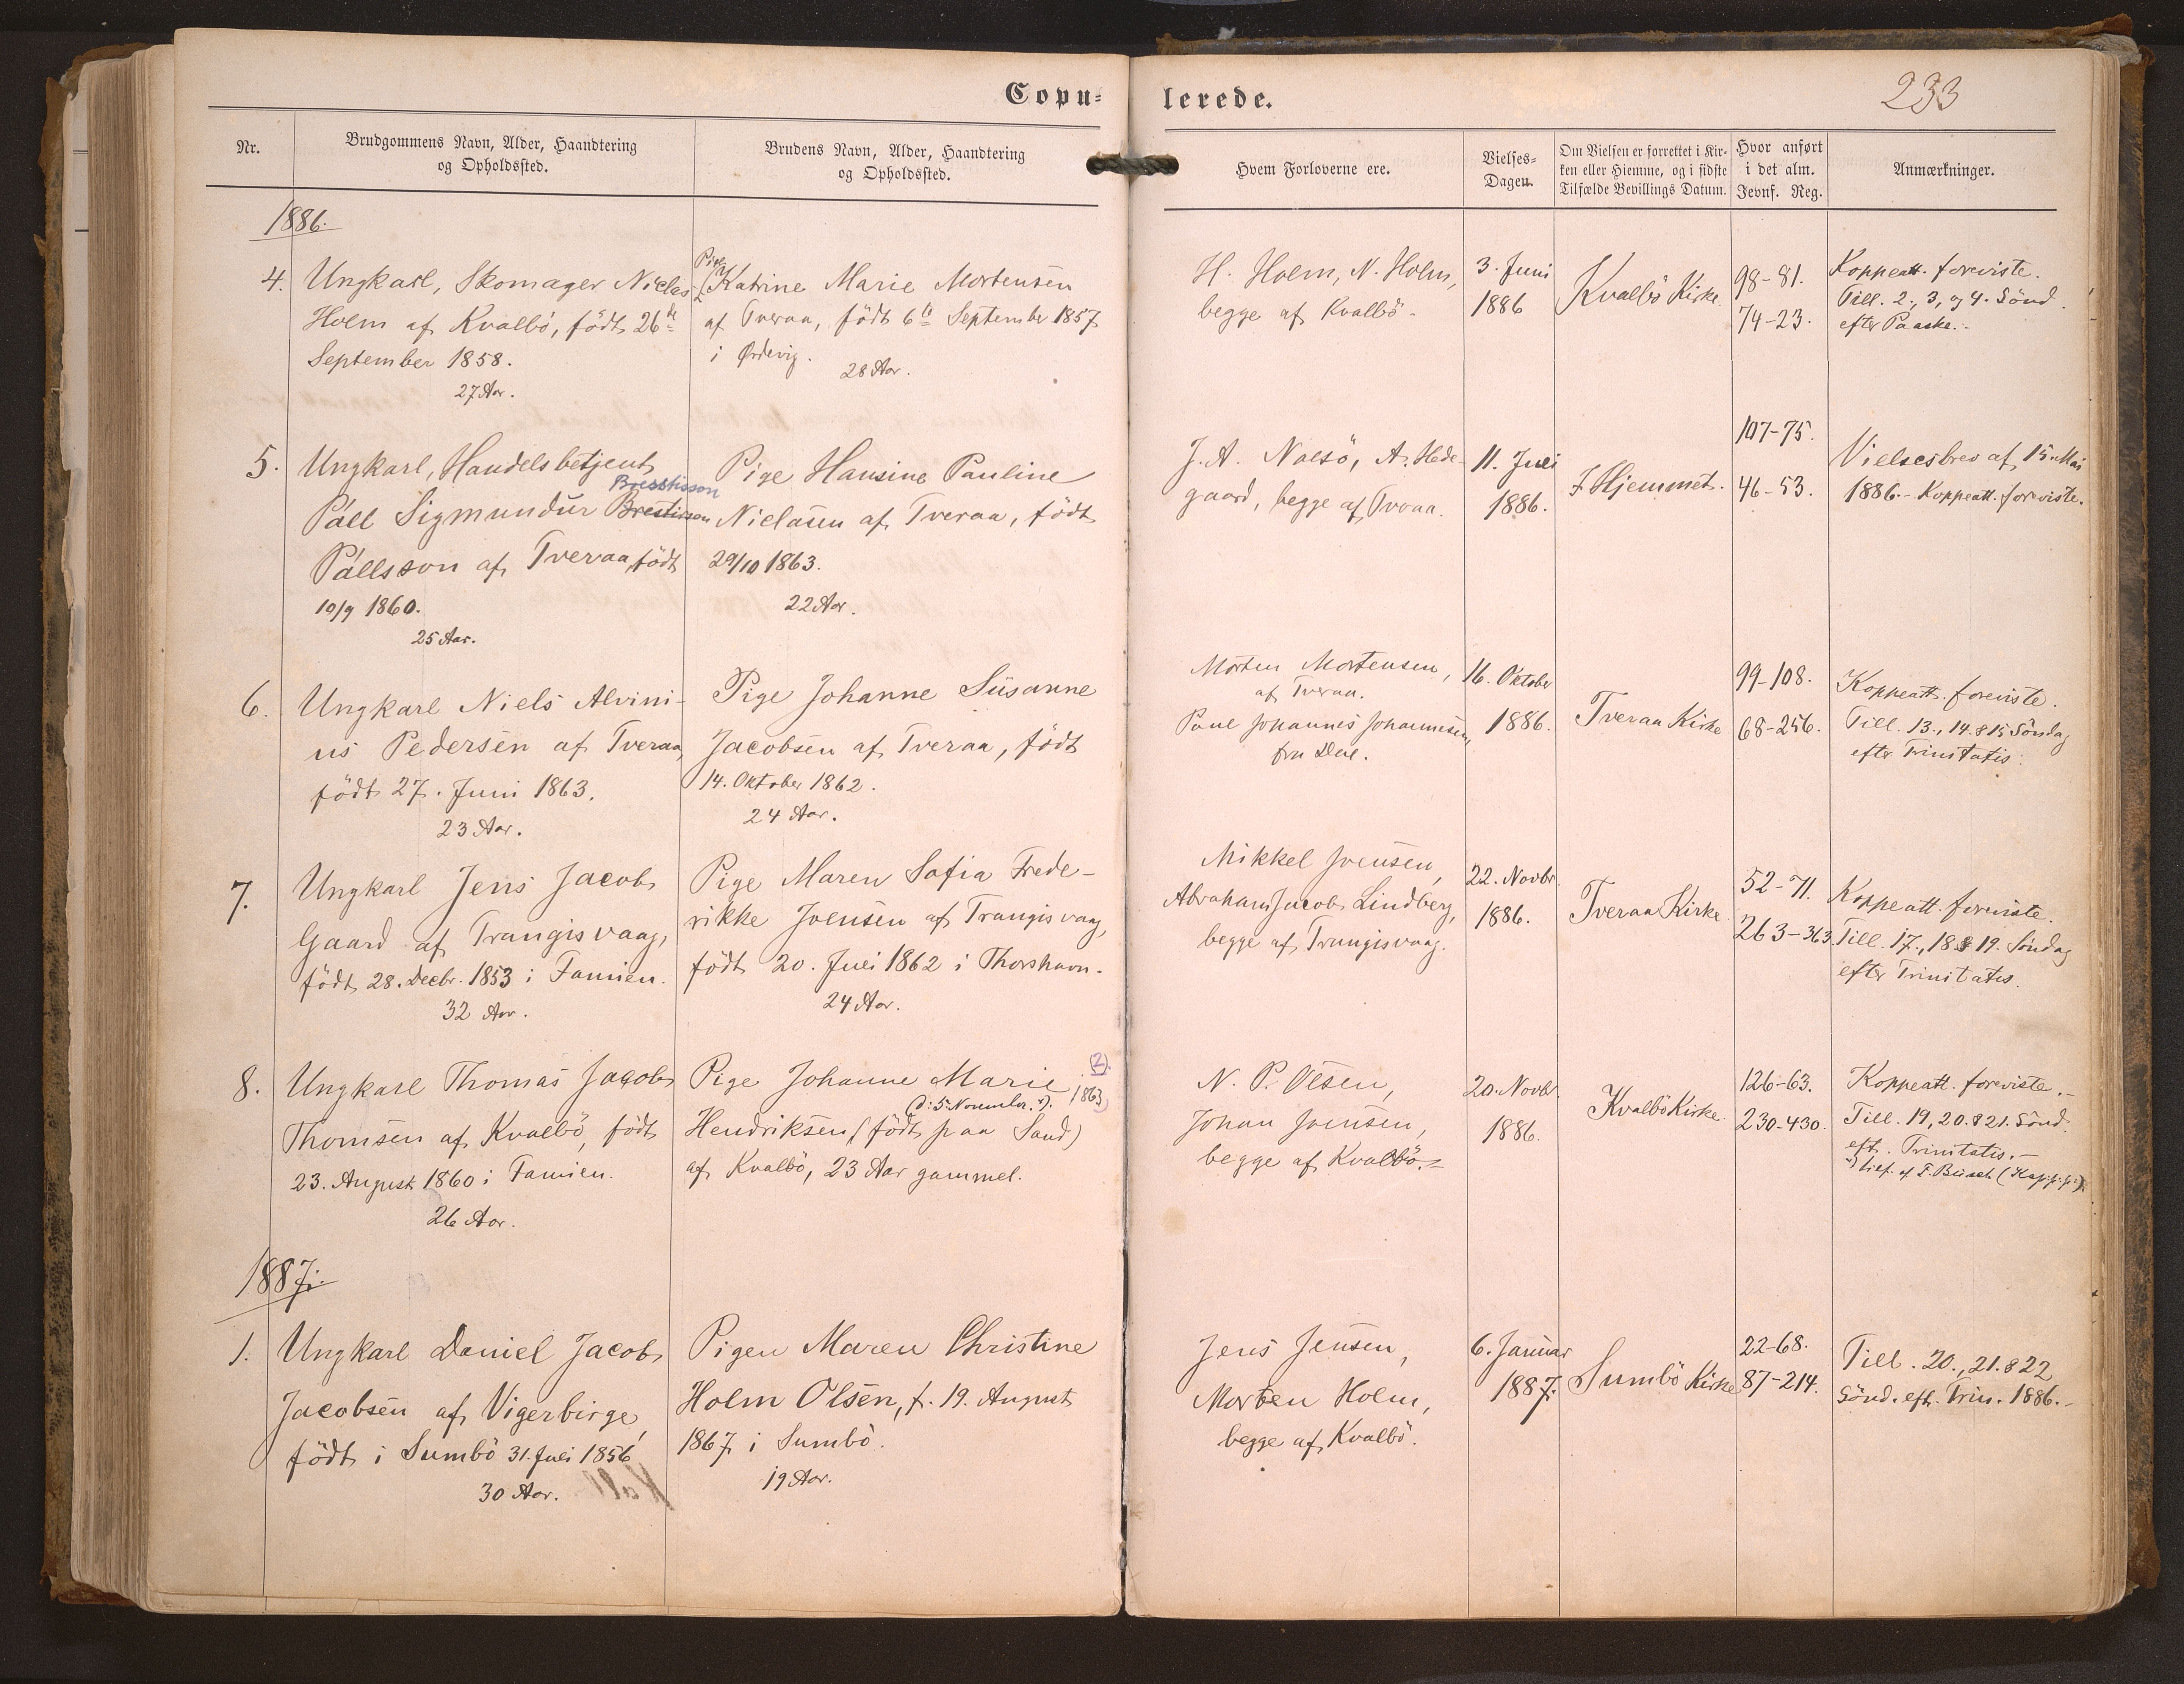 Copu=
lerede.
233
Nr.
Brudgommens Navn, Alder, Haandtering
og Opholdssted.
Brudens Navn, Alder, Haandtering
og Opholdssted.
Hvem Forloverne ere.
Vielses-
Dagen.
Om Vielsen er forrettet i Kir-
ken eller Hiemme, og i sidste
Tilfælde Bevillings Datum.
Hvor anført
i det alm.
Jevnf. Reg.
Anmærkninger.
1886.
4.
Ungkarl, Skomager Niclas
Holm af Kvalbö, födt 26de
September 1858.
27 Aar.
Pigen
Katrine Marie Mortensen
af Tveraa, födt 6te September 1857
i Ørdevig.
28 Aar.
H. Holm, N. Holm,
begge af Kvalbö.
3. Juni
1886
Kvalbö Kirke
98-81.
74-23.
Koppeatt. foreviste.
Till. 2., 3, og 4. Sönd.
efter Paaske.
5.
Ungkarl, Handelsbetjent
Bresstisson
Páll Sigmundur Brestisson
Pállsson af Tveraa, födt
10/9 1860.
25 Aar.
Pige Hansine Pauline
Niclasen af Tveraa, födt
29/10 1863.
22 Aar.
J. A. Nolsö, A. Hede-
gaard, begge af Tveraa.
11. Juli
1886.
I Hjemmet.
107-75.
46-53.
Vielsesbrev af 15 Mai
1886.- Koppeatt. foreviste.
6.
Ungkarl Niels Alvini-
us Pedersen af Tveraa,
födt 27. Juni 1863.
23 Aar.
Pige Johanne Susanne
Jacobsen af Tveraa, födt
14. Oktober 1862.
24 Aar.
Morten Mortensen,
af Tveraa.
Poul Johannes Johannesen,
fra
16. Oktober
1886.
Tveraa Kirke
99-108.
68-256.
Koppeatt. foreviste.
Till. 13., 14. & 15 Söndag
efter Trinitatis.
7.
Ungkarl Jens Jacob
Gaard af Trangisvaag,
födt 28. Decbr. 1853 i Famien.
32 Aar.
Pige Maren Sofia Frede-
rikke Joensen af Trangisvaag,
födt 20. Juli 1862 i Thorshavn.
24 Aar.
Mikkel Joensen,
Abraham Jacob Lindberg,
begge af Trangisvaag.
22. Novbr.
1886.
Tveraa Kirke
52-71.
263-363
Koppeatt. foreviste.
Till. 17., 18 & 19. Söndag
efter Trinitatis.
8.
Ungkarl Thomas Jacob
Thomsen af Kvalbö, födt
23. August 1860 i Famien.
26 Aar.
(2).
Pige Johanne Marie
(d: 5 November. *). 1863
Hendriksen (födt paa Sand)
af Kvalbö, 23 Aar gammel.
N. P. Olsen,
Johan Joensen,
begge af Kvalbö.
20. Novbr.
1886.
Kvalbö Kirke
126-63.
230-430.
Koppeatt. foreviste.
Till. 19, 20. & 21. Sönd.
eft. Trinitatis.
1887.
1.
Ungkarl Daniel Jacob
Jacobsen af Vigerbirge,
födt i Sumbö 31. Juli 1856
30 Aar.
Pigen Maren Christine
Holm Olsen, f. 19. August
1867 i Sumbö.
19 Aar.
Jens Jensen,
Morten Holm,
begge af Kvalbö.
6. Januar
1887.
Sumbö Kirke
22-68.
87-214.
Till. 20., 21. & 22
Sönd. eft. Trin. 1886.